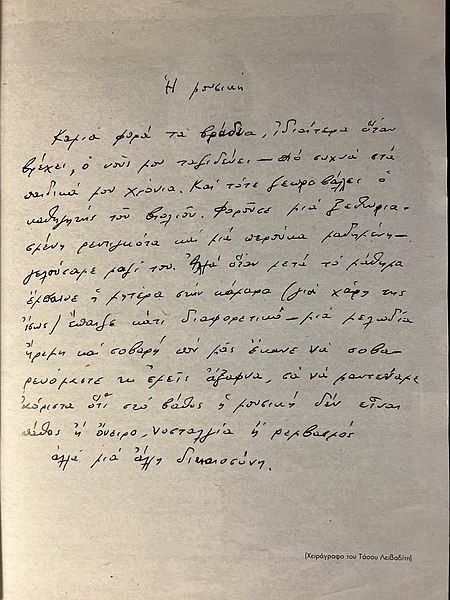 Ἡ μουσική
Καμιά φορά τά βράδυα, ἰδιαίτερα ὅταν
βρέχει, ὁ νοῦς μου ταξιδεύει – πιό συχνά στά
παιδικά μου χρόνια. Καί τότε ξεπροβάλλει ὁ
καθηγητής τοῦ βιολιοῦ. Φοροῦσε μιά ξεθωρια-
σμένη ρεντιγκότα καί μιά περούκα μαδημένη –
γελούσαμε μαζί του. Ἀλλά ὅταν μετά τό μάθημα
ἔμπαινε ἡ μητέρα στήν κάμαρα (γιά χάρη της
ἴσως) ἔπαιζε κάτι διαφορετικό – μιά μελωδία
ἤρεμη καί σοβαρή πού μᾶς ἔκανε νά σοβα-
ρευόμαστε κι ἐμεῖς ἄξαφνα, σά νά μαντεύαμε
ἀόριστα ὅτι στό βάθος ἡ μουσική δέν εἶναι
πάθος ἤ ὄνειρο, νοσταλγία ἤ ρεμβασμός
ἀλλά μιά ἄλλη δικαιοσύνη.
(Χειρόγραφο του Τάσου Λειβαδίτη)